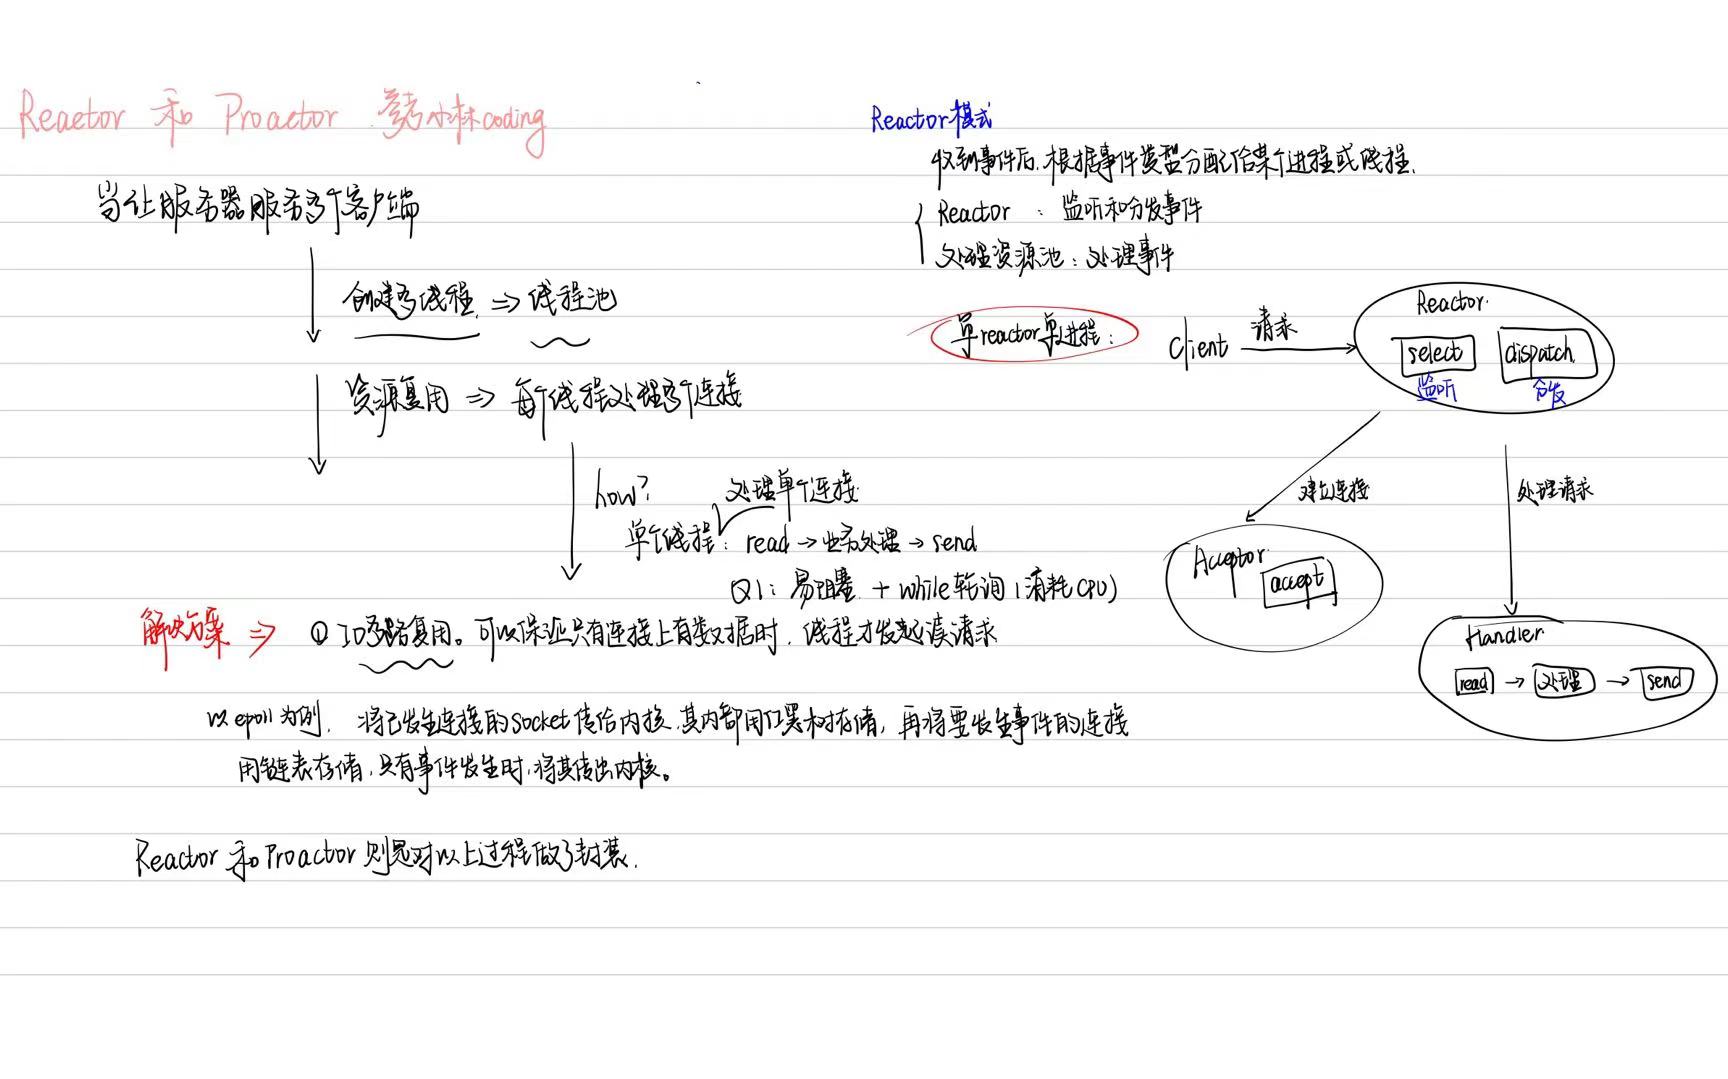 Reactor 和 Proactor 参考小林coding
当让服务器服务多个客户端
创建多线程 => 线程池
资源复用 => 每个线程处理多个连接
how?
处理单个连接
单个线程: read → 业务处理 → send
Q1: 易阻塞 + while轮询(消耗CPU)
解决方案 => ① IO多路复用。可以保证只有连接上有数据时, 线程才发起读请求
以epoll为例, 将已发生连接的socket传给内核,其内部用红黑树存储, 再将要发生事件的连接
用链表存储,只有事件发生时,将其传出内核。
Reactor 和 Proactor 则是对以上过程做了封装.
Reactor模式
收到事件后,根据事件类型分配给某个进程或线程.
Reactor : 监听和分发事件
处理资源池: 处理事件
单reactor单进程:
Client
请求
Reactor
select
dispatch
监听
分发
建立连接
处理请求
Acceptor
accept
Handler
read → 处理 → send